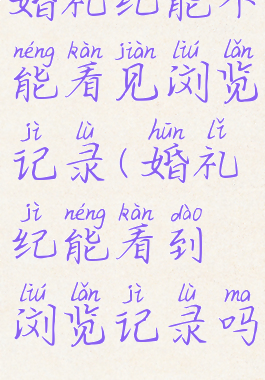 婚礼纪能不
néng kàn jiàn liú lǎn
能看见浏览
jì lù hūn lǐ
记录(婚礼
jì néng kàn dào
纪能看到
liú lǎn jì lù ma
浏览记录吗